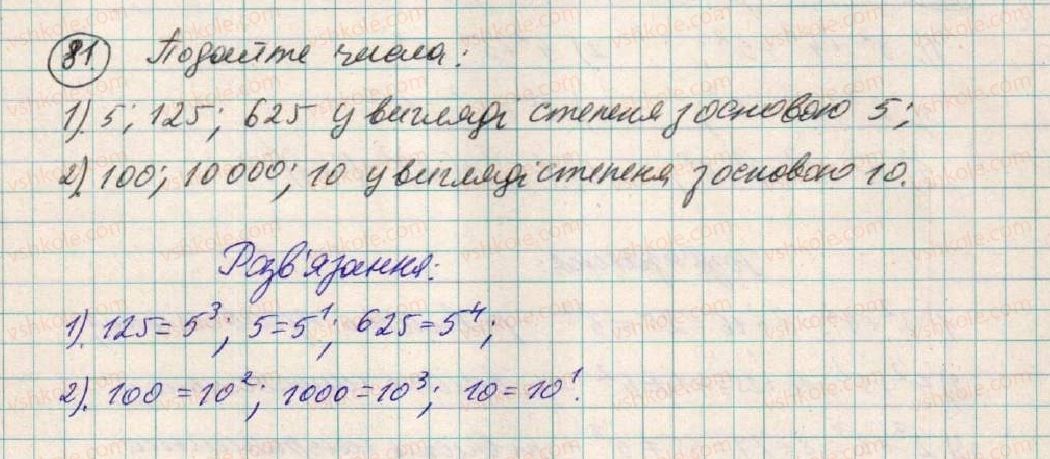 81 Подайте числа:
1). 5; 125; 625 у вигляді степеня з основою 5;
2). 100; 10 000; 10 у вигляді степеня з основою 10.
Розв'язання:
1). 125 = 5³; 5 = 5¹; 625 = 5⁴;
2). 100 = 10²; 1000 = 10³; 10 = 10¹.